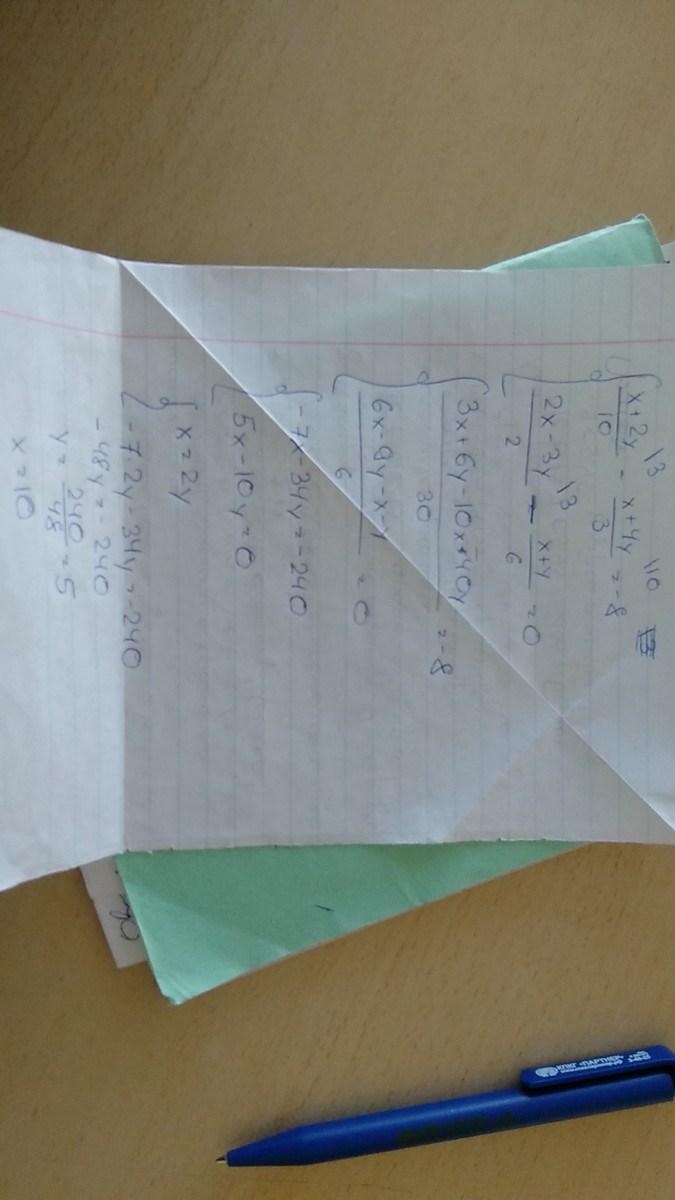 x+2y/10 \3 - x+4y/3 \10 = -8
2x-3y/2 \3 - x+y/6 = 0
3x+6y-10x-40y/30 = -8
6x-9y-x-y/6 = 0
-7x-34y=-240
5x-10y=0
x=2y
-7·2y-34y=-240
-48y=-240
y=240/48=5
x=10
КПКГ «ПАРТНЕР»